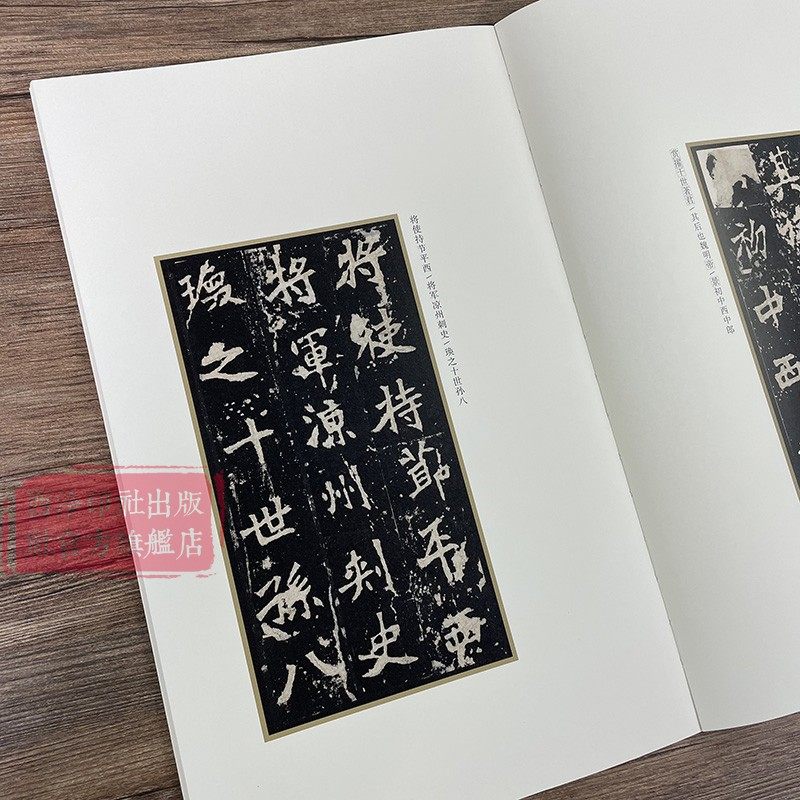 世著君/其后也魏明帝/景初中西中郎
其
初中西
将使持节平西/将军凉州刺史/瑍之十世孙八
將使持節平西
將軍涼州刾史
瑍之十世孫八
印社出版
旗艦店